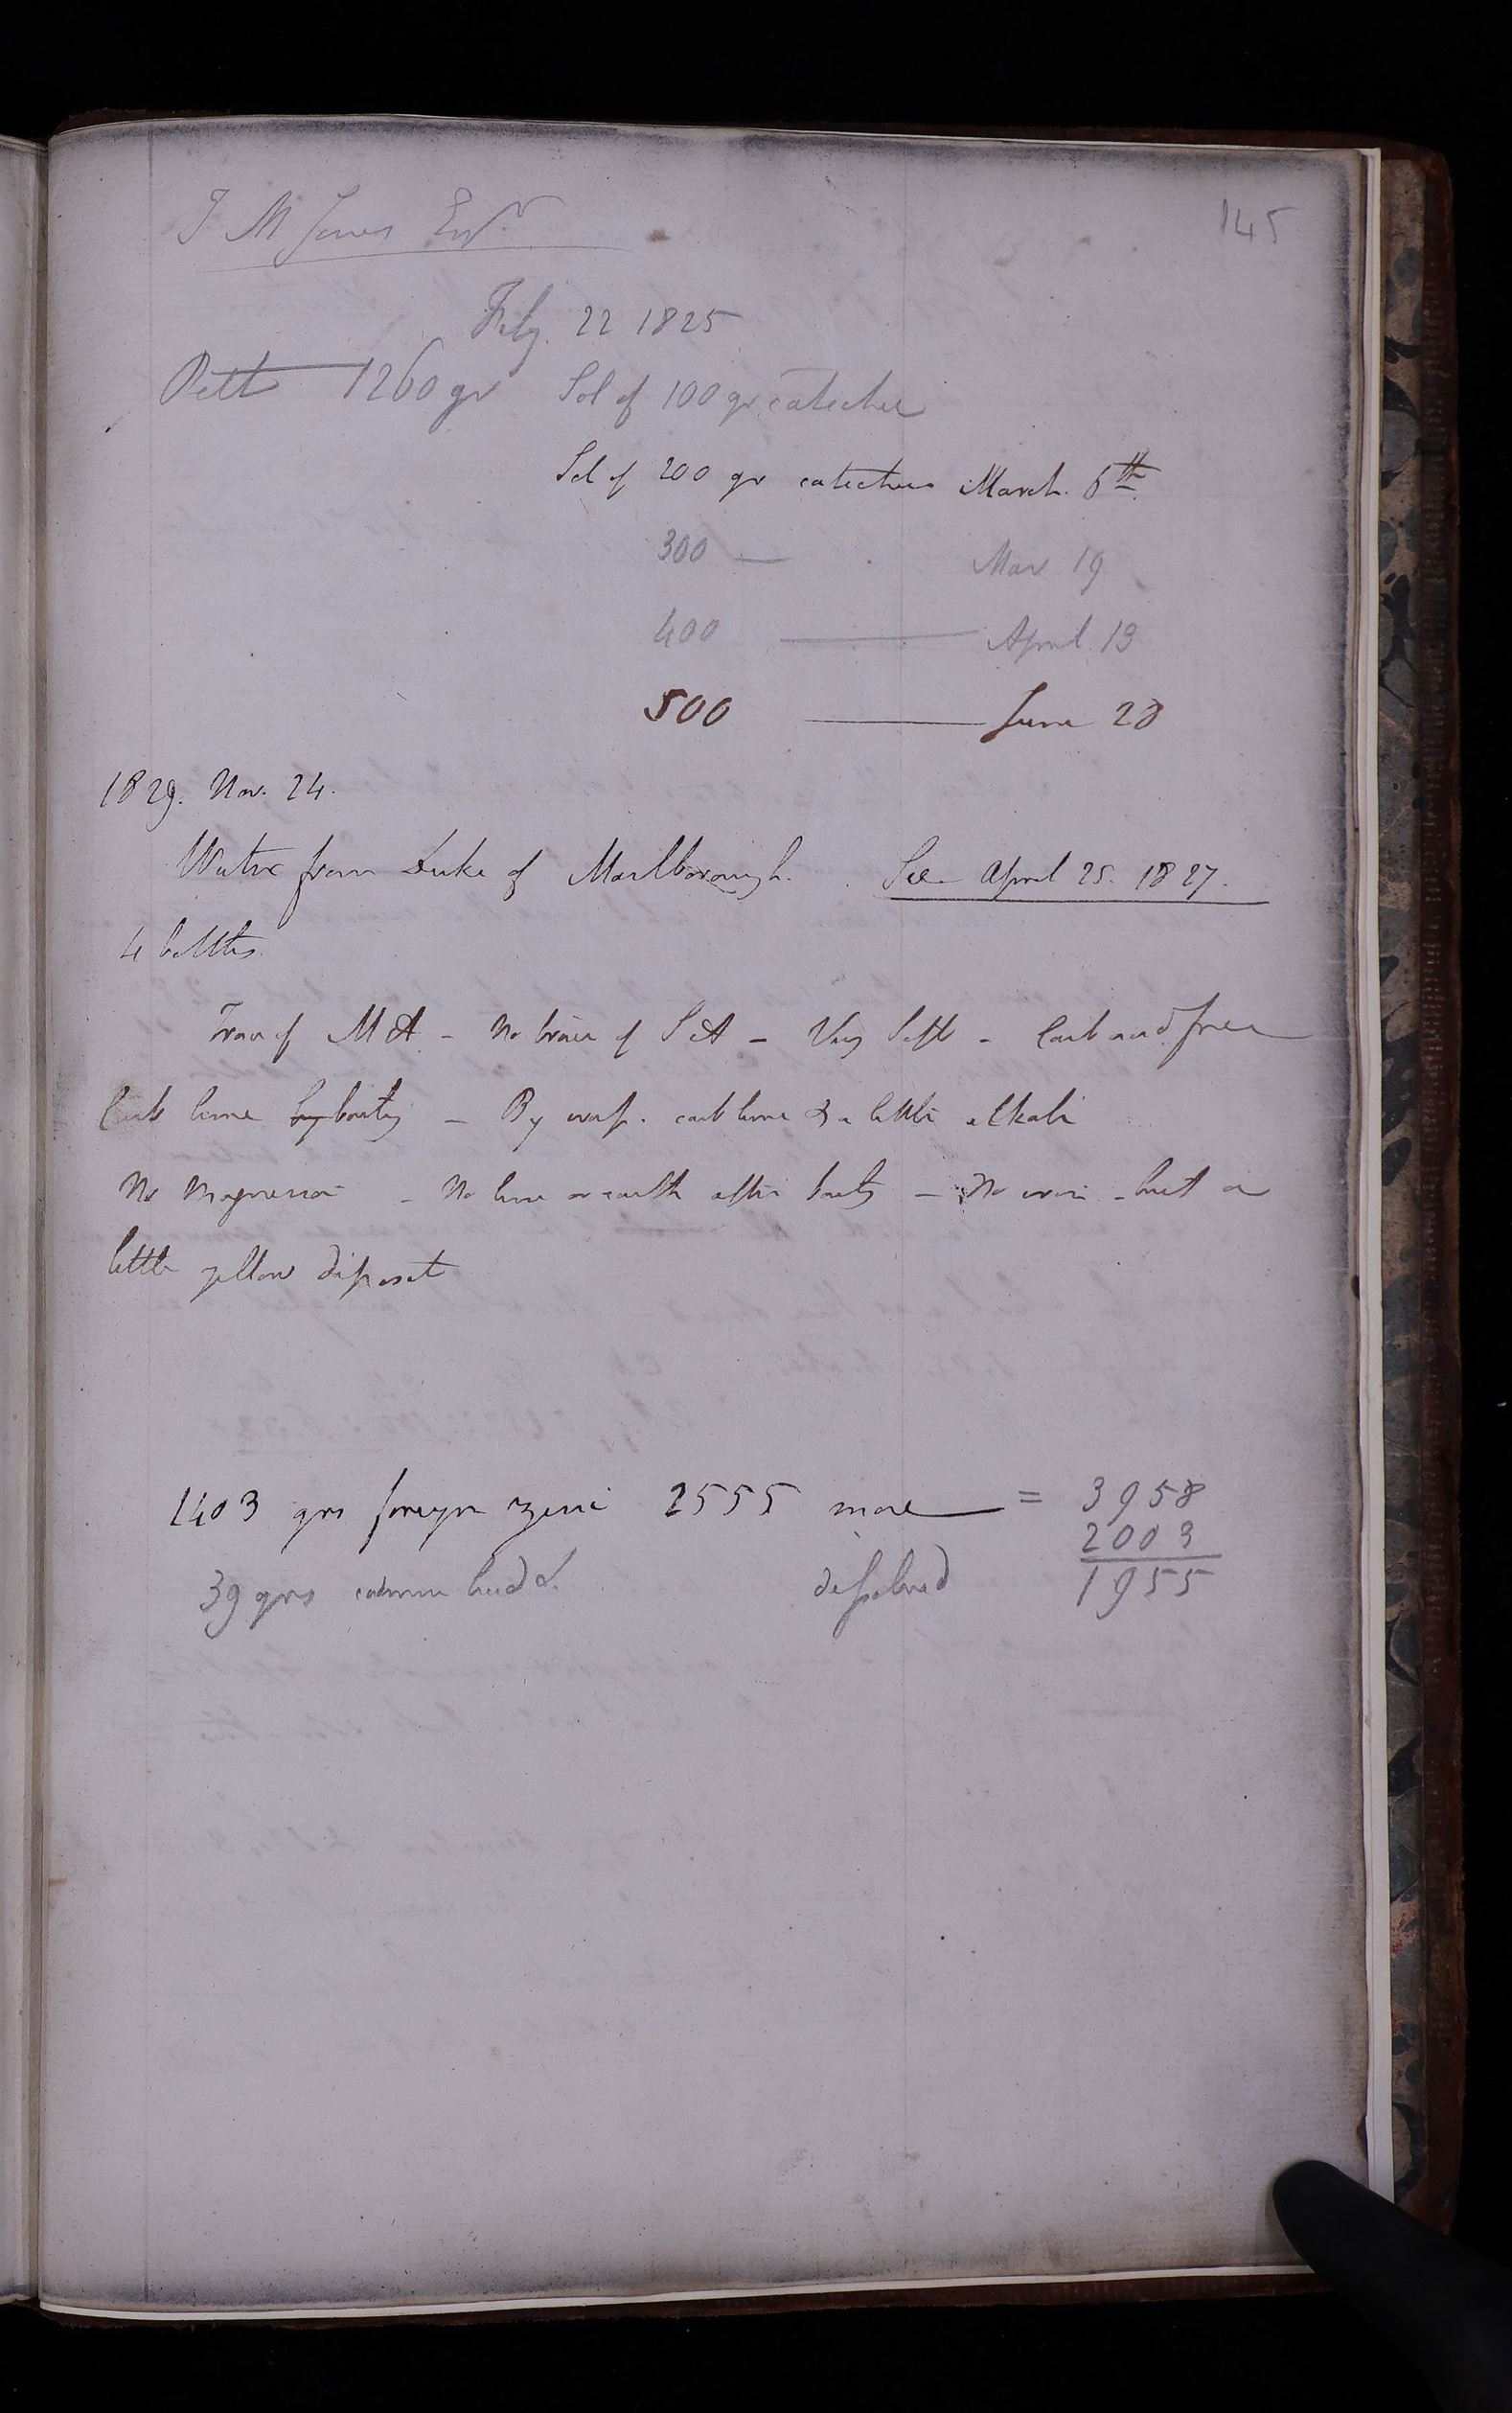 145
T M Jones Esqr
Feby. 22 1825
Pelt 1260 gr Sol of 100 gr catechu
Sol of 200 gr catechu March. 6th
300 — Mar 19
400 — April 13
500 — June 28
1829. Nov. 24.
Water from Duke of Marlborough. See April 25. 1827.
4 bottles.
Trace of M A - No trace of S A - Very Soft - Carb acid free
Carb lime by boilg - By evap. carb lime & a little alkali
No Magnesia - No lime or earth after boilg - No iron - but a
little yellow deposit
1403 grs foreign zinc 2555 more = 3958
2003
39 grs dissolved 1955